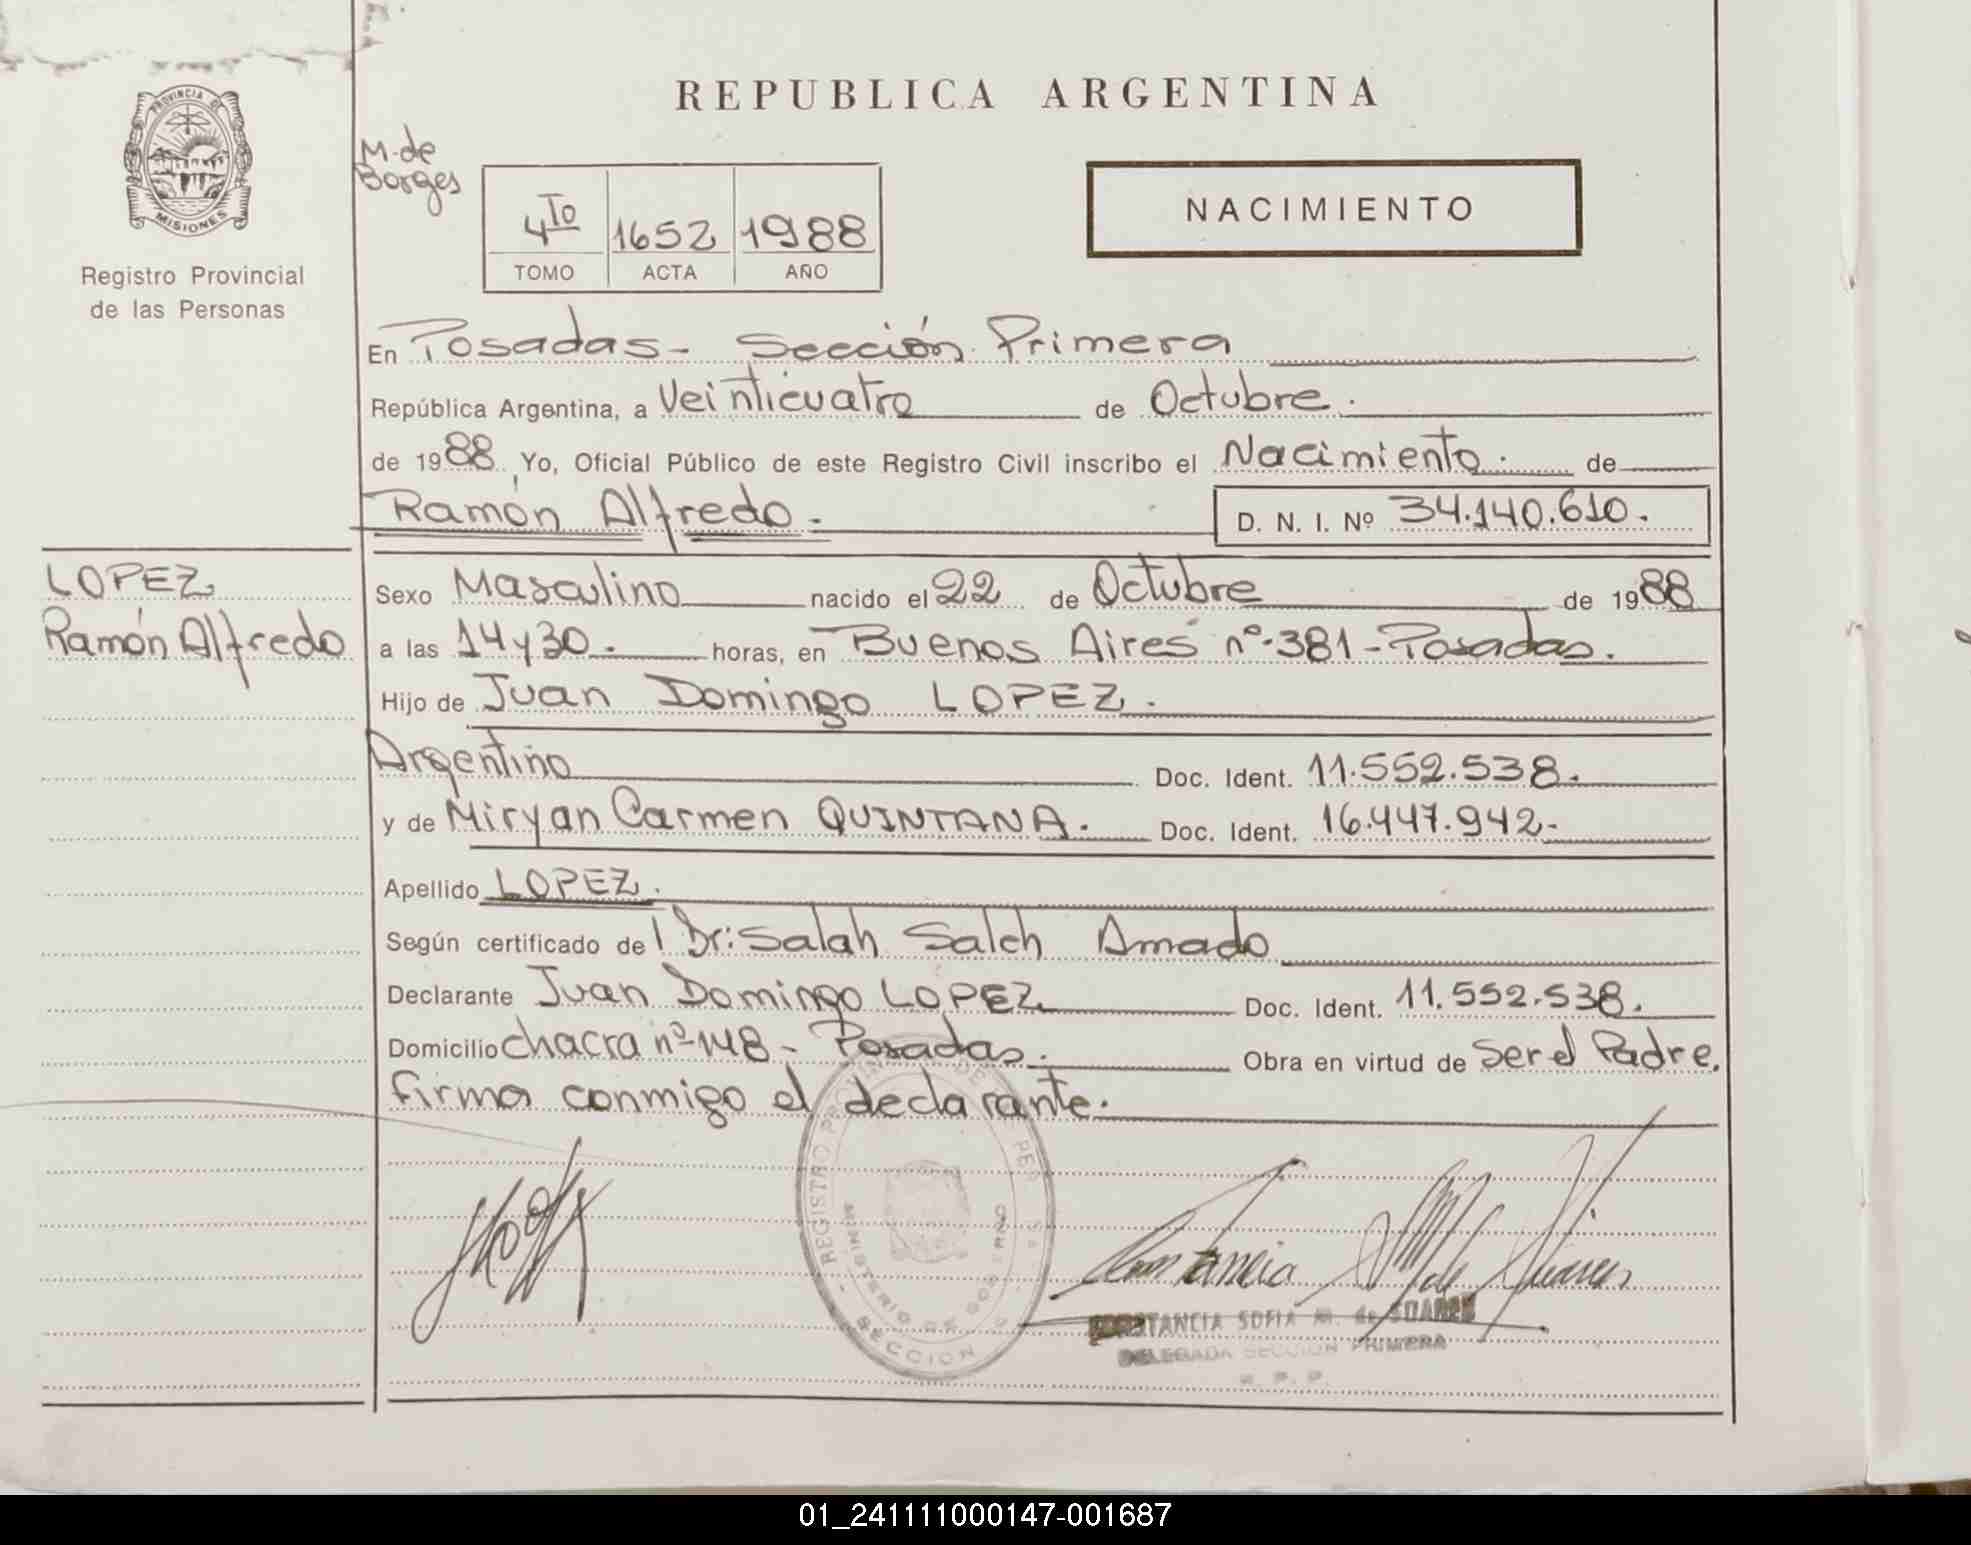 REPUBLICA ARGENTINA
PROVINCIA DE
MISIONES
Registro Provincial
de las Personas
M. de
Borges
4TO 1652 1988
TOMO ACTA AÑO
NACIMIENTO
En Posadas - Sección Primera
República Argentina, a Veinticuatro de Octubre.
de 1988. Yo, Oficial Público de este Registro Civil inscribo el Nacimiento. de
Ramón Alfredo. D. N. I. Nº 34.140.610.
LOPEZ
Ramón Alfredo
Sexo Masculino nacido el 22 de Octubre de 1988
a las 14 y 30. horas, en Buenos Aires nº 381 - Posadas.
Hijo de Juan Domingo LOPEZ.
Argentino Doc. Ident. 11.552.538.
y de Miryan Carmen QUINTANA. Doc. Ident. 16.447.942-
Apellido LOPEZ.
Según certificado del Dr: Salah Saleh Amado
Declarante Juan Domingo LOPEZ Doc. Ident. 11.552.538.
Domicilio chacra nº 148 - Posadas. Obra en virtud de Ser el Padre.
firma conmigo el declarante.
REGISTRO PROVINCIAL DE LAS PERSONAS
MINISTERIO DE GOBIERNO
SECCION
CONSTANCIA SOFIA M. de SUAREZ
DELEGADA SECCION PRIMERA
R. P. P.
01_241111000147-001687